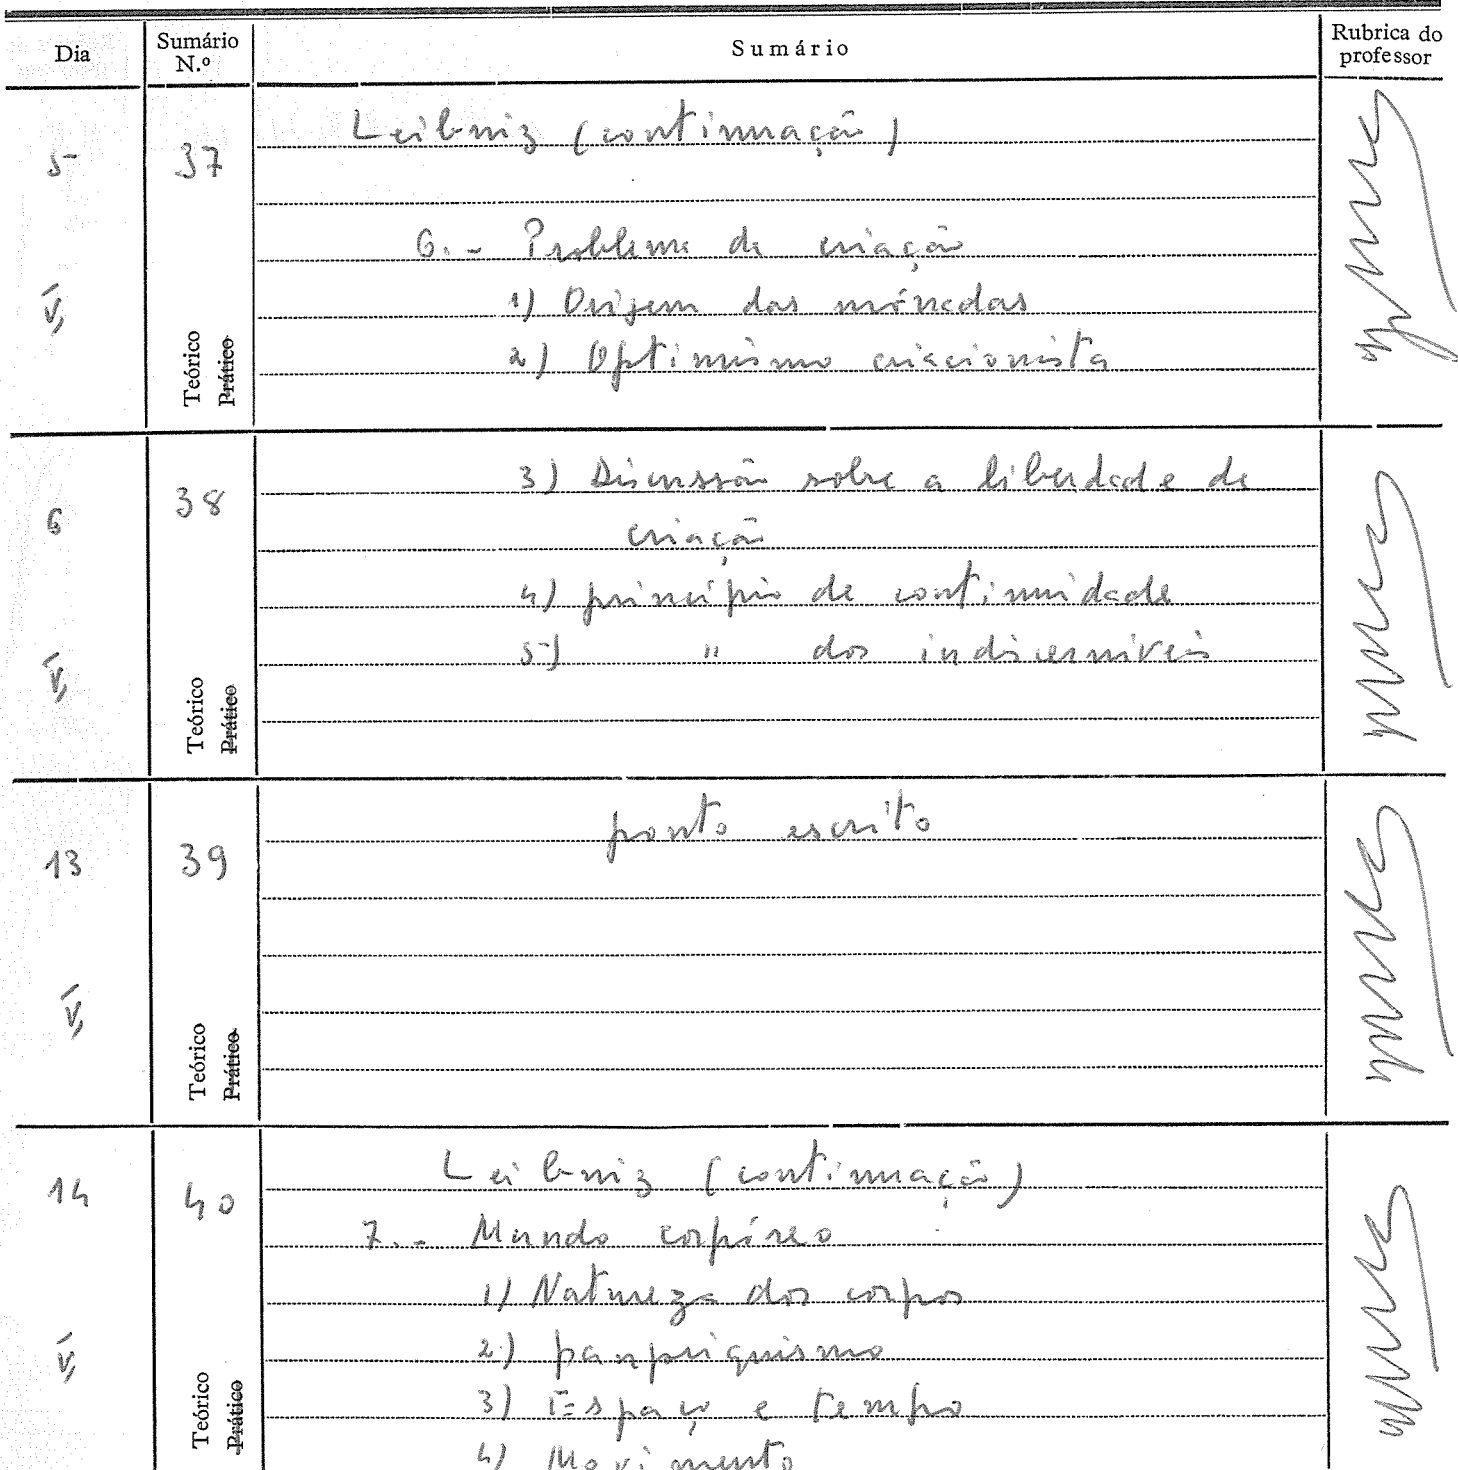 Dia
Sumário N.º
Sumário
Rubrica do professor
5
V
37
Teórico
Prático
Leibniz (continuação)
6.- Problema da criação
1) Origem das mónadas
2) Optimismo criacionista
6
V
38
Teórico
Prático
3) Discussão sobre a liberdade da
criação
4) princípio de continuidade
5) " dos indiscerníveis
13
V
39
Teórico
Prático
ponto escrito
14
V
40
Teórico
Prático
Leibniz (continuação)
7.- Mundo corpóreo
1) Natureza dos corpos
2) panpsiquismo
3) Espaço e tempo
4) Movimento